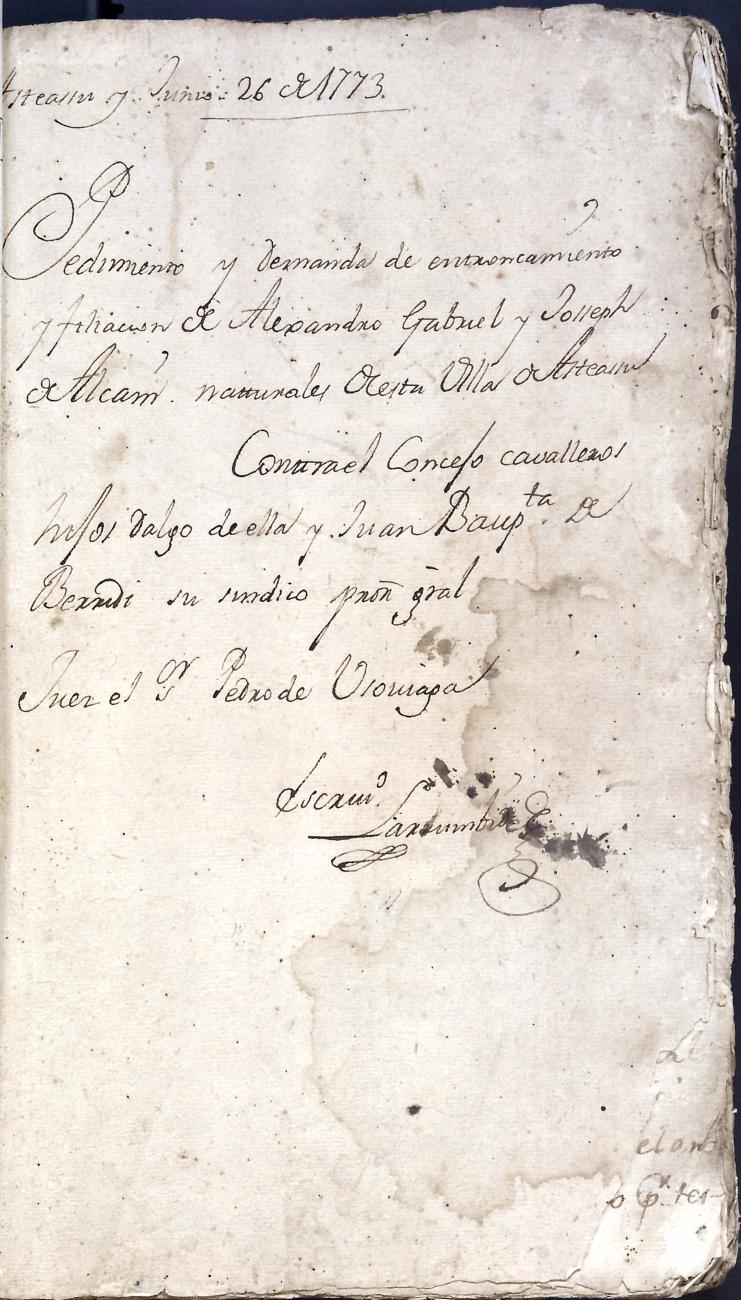 Asteasu y Junio 26 de 1773.
Pedimiento y demanda de entroncamiento
y filiacion de Alexandro Gabriel y Josseph
de Alcain naturales de esta Villa de Asteasu
Contra el Concejo cavalleros
hijos dalgo de ella y Juan Bapta. de
Berridi su sindico pron gral
Juez el Sr Pedro de Usoviaga
Escrivo.
Larrumbide